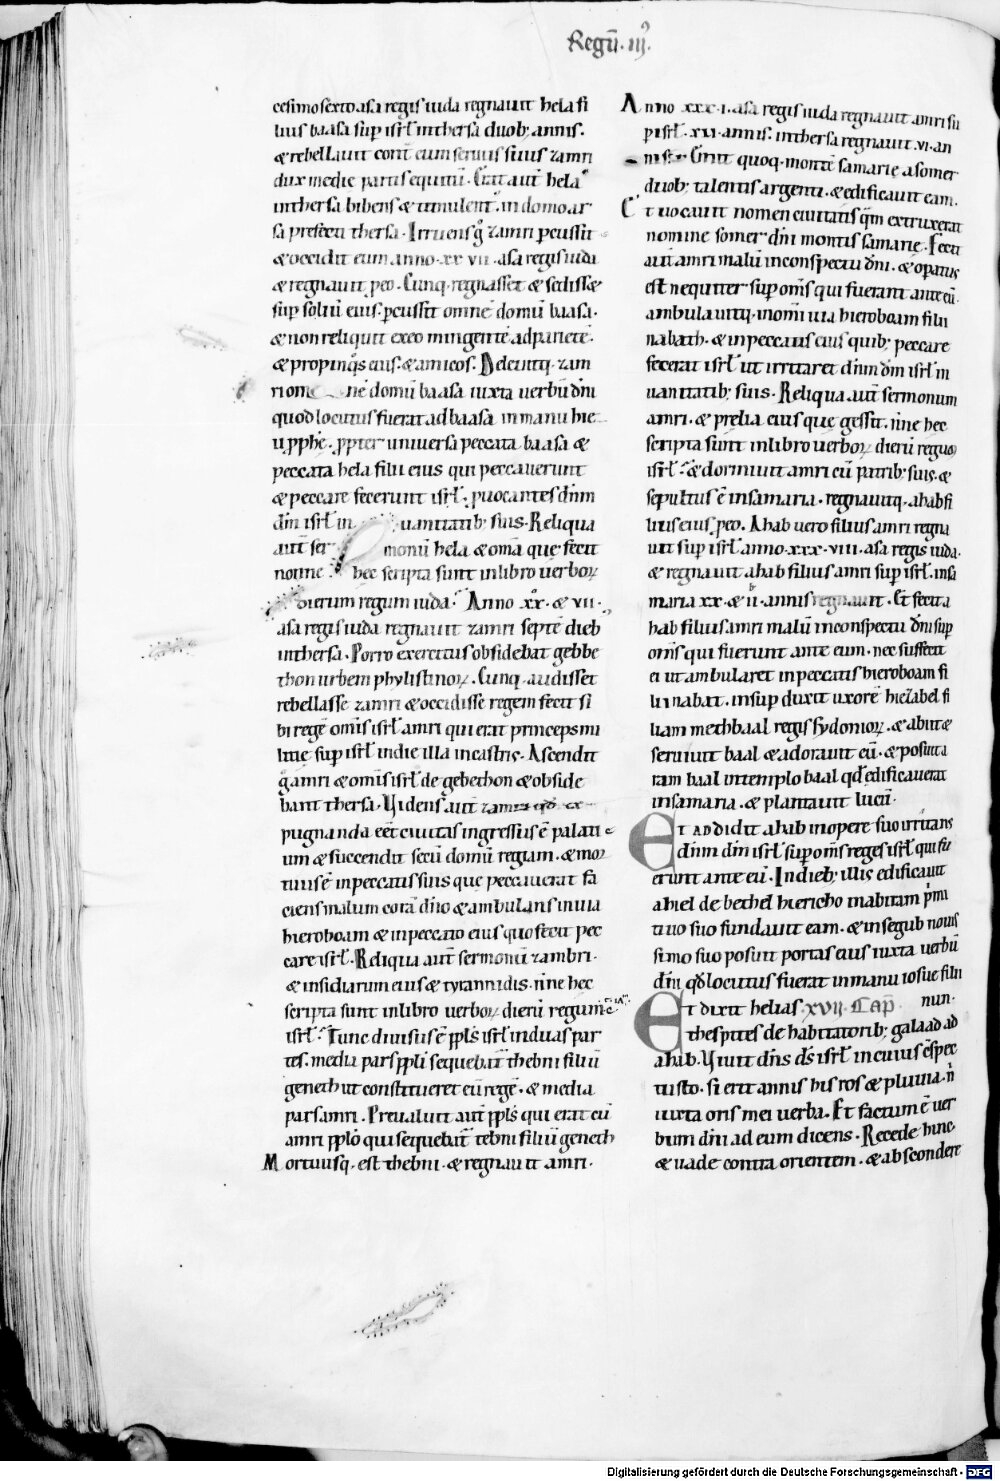 Regū. iijꝰ.
cesimosexto asa regis iuda regnauit hela fi
lius baasa sup isrl inthersa duob; annis.
& rebellauit cont eum seruus suus zamri
dux medie partis equitū. Erat aut hela
inthersa bibens & temulent. in domo ar
sa prefecti thersa. Irruens g zamri pcussit
& occidit eum anno. xx vii. asa regis iuda
& regnauit p eo. Cunq. regnasset & sedisset
sup soliū eius. pcussit omnē domū baasa.
& non reliquit ex eo mingentē ad parietē.
& propinqs eius. & amicos. Deleuitq. zam
ri om nē domū baasa iuxta uerbū dni
quod locutus fuerat ad baasa in manu hie
u pphe. ppter uniuersa peccata baasa &
peccata hela filii eius qui peccauerunt
& peccare fecerunt isrl. puocantes dnm
dm isrl in uanitatib; suis. Reliqua
aut ser monū hela & oma que fecit
nonne hec scripta sunt in libro uerboꝝ
dierum regum iuda. Anno xx. & vii.
asa regis iuda regnauit zamri septē dieb
inthersa. Porro exercitus obsidebat gebbe
thon urbem phylistinoꝝ. Cunq. audisset
rebellasse zamri & occidisse regem fecit si
bi regē omis isrl amri qui erat princeps mi
litie sup isrl in die illa in castris. Ascendit
g amri & omis isrl de gebethon & obside
bant thersa. Uidens aut zamri qd ex
pugnanda eet ciuitas ingressus ē palati
um & succendit secū domū regiam. & mor
tuus ē in peccatis suis que peccauerat fa
ciens malum corā dno & ambulans in uia
hieroboam & in peccato eius quo fecit pec
care isrl. Reliqua aut sermonū zambri.
& insidiarum eius & tyrannidis. nne hec
scripta sunt in libro uerboꝝ dierū regum
isrl. Tunc diuisus ē ppls isrl in duas par
tes. media pars ppli sequebat thebni filiū
geneth ut constitueret eū regē. & media
pars amri. Preualuit aut ppls qui erat cū
amri pplo qui sequebat tebni filiū geneth
Mortuusq. est thebni. & regnauit amri.
Anno xxx.i. asa regis iuda regnauit amri su
p isrl. xii. annis. inthersa regnauit. vi. an
nis. Emit quoq. montē samarię a somer
duob; talentis argenti. & edificauit eam.
Et uocauit nomen ciuitatis qm extruxerat
nomine somer dni montis samarię. Fecit
aut amri malū in conspectu dni. & opatus
est nequiter sup oms qui fuerant ante eū.
ambulauitq. in omi uia hieroboam filii
nabath. & in peccatis eius quib; peccare
fecerat isrl ut irritaret dnm dm isrl in
uanitatib; suis. Reliqua aut sermonum
amri. & prelia eius que gessit. nne hec
scripta sunt in libro uerboꝝ dierū reguꝫ
isrl. & dormiuit amri cū patrib; suis. &
sepultus ē in samaria. regnauitq. ahab fi
lius eius p eo. Ahab uero filius amri regna
uit sup isrl anno. xxx. viii. asa regis iuda.
& regnauit ahab filius amri sup isrl. in sa
maria xx. & ii. annis regnauit. Et fecit a
hab filius amri malū in conspectu dni sup
oms qui fuerunt ante eum. nec suffecit
ei ut ambularet in peccatis hieroboam fi
lii nabat. insup duxit uxorē hiezabel fi
liam methbaal regis sydonioꝝ. & abiit &
seruiuit baal & adorauit eū. & posuit a
ram baal in templo baal qd edificauerat
in samaria. & plantauit lucū.
Et addidit ahab in opere suo irritans
dnm dm isrl sup oms reges isrl qui fu
erunt ante eū. In dieb; illis edificauit
ahiel de bethel hiericho in abiram pmi
tiuo suo fundauit eam. & in segub nouis
simo suo posuit portas eius iuxta uerbū
dni qd locutus fuerat in manu iosue filii
nun.
Et dixit helias. xvii. Cap.
thesbites de habitatorib; galaad ad
ahab. Uiuit dns ds isrl in cuius cspec
tu sto. si erit annis his ros & pluuia. n
iuxta oris mei uerba. Et factum ē uer
bum dni ad eum dicens. Recede hinc.
& uade contra orientem. & abscondere
Digitalisierung gefördert durch die Deutsche Forschungsgemeinschaft - DFG